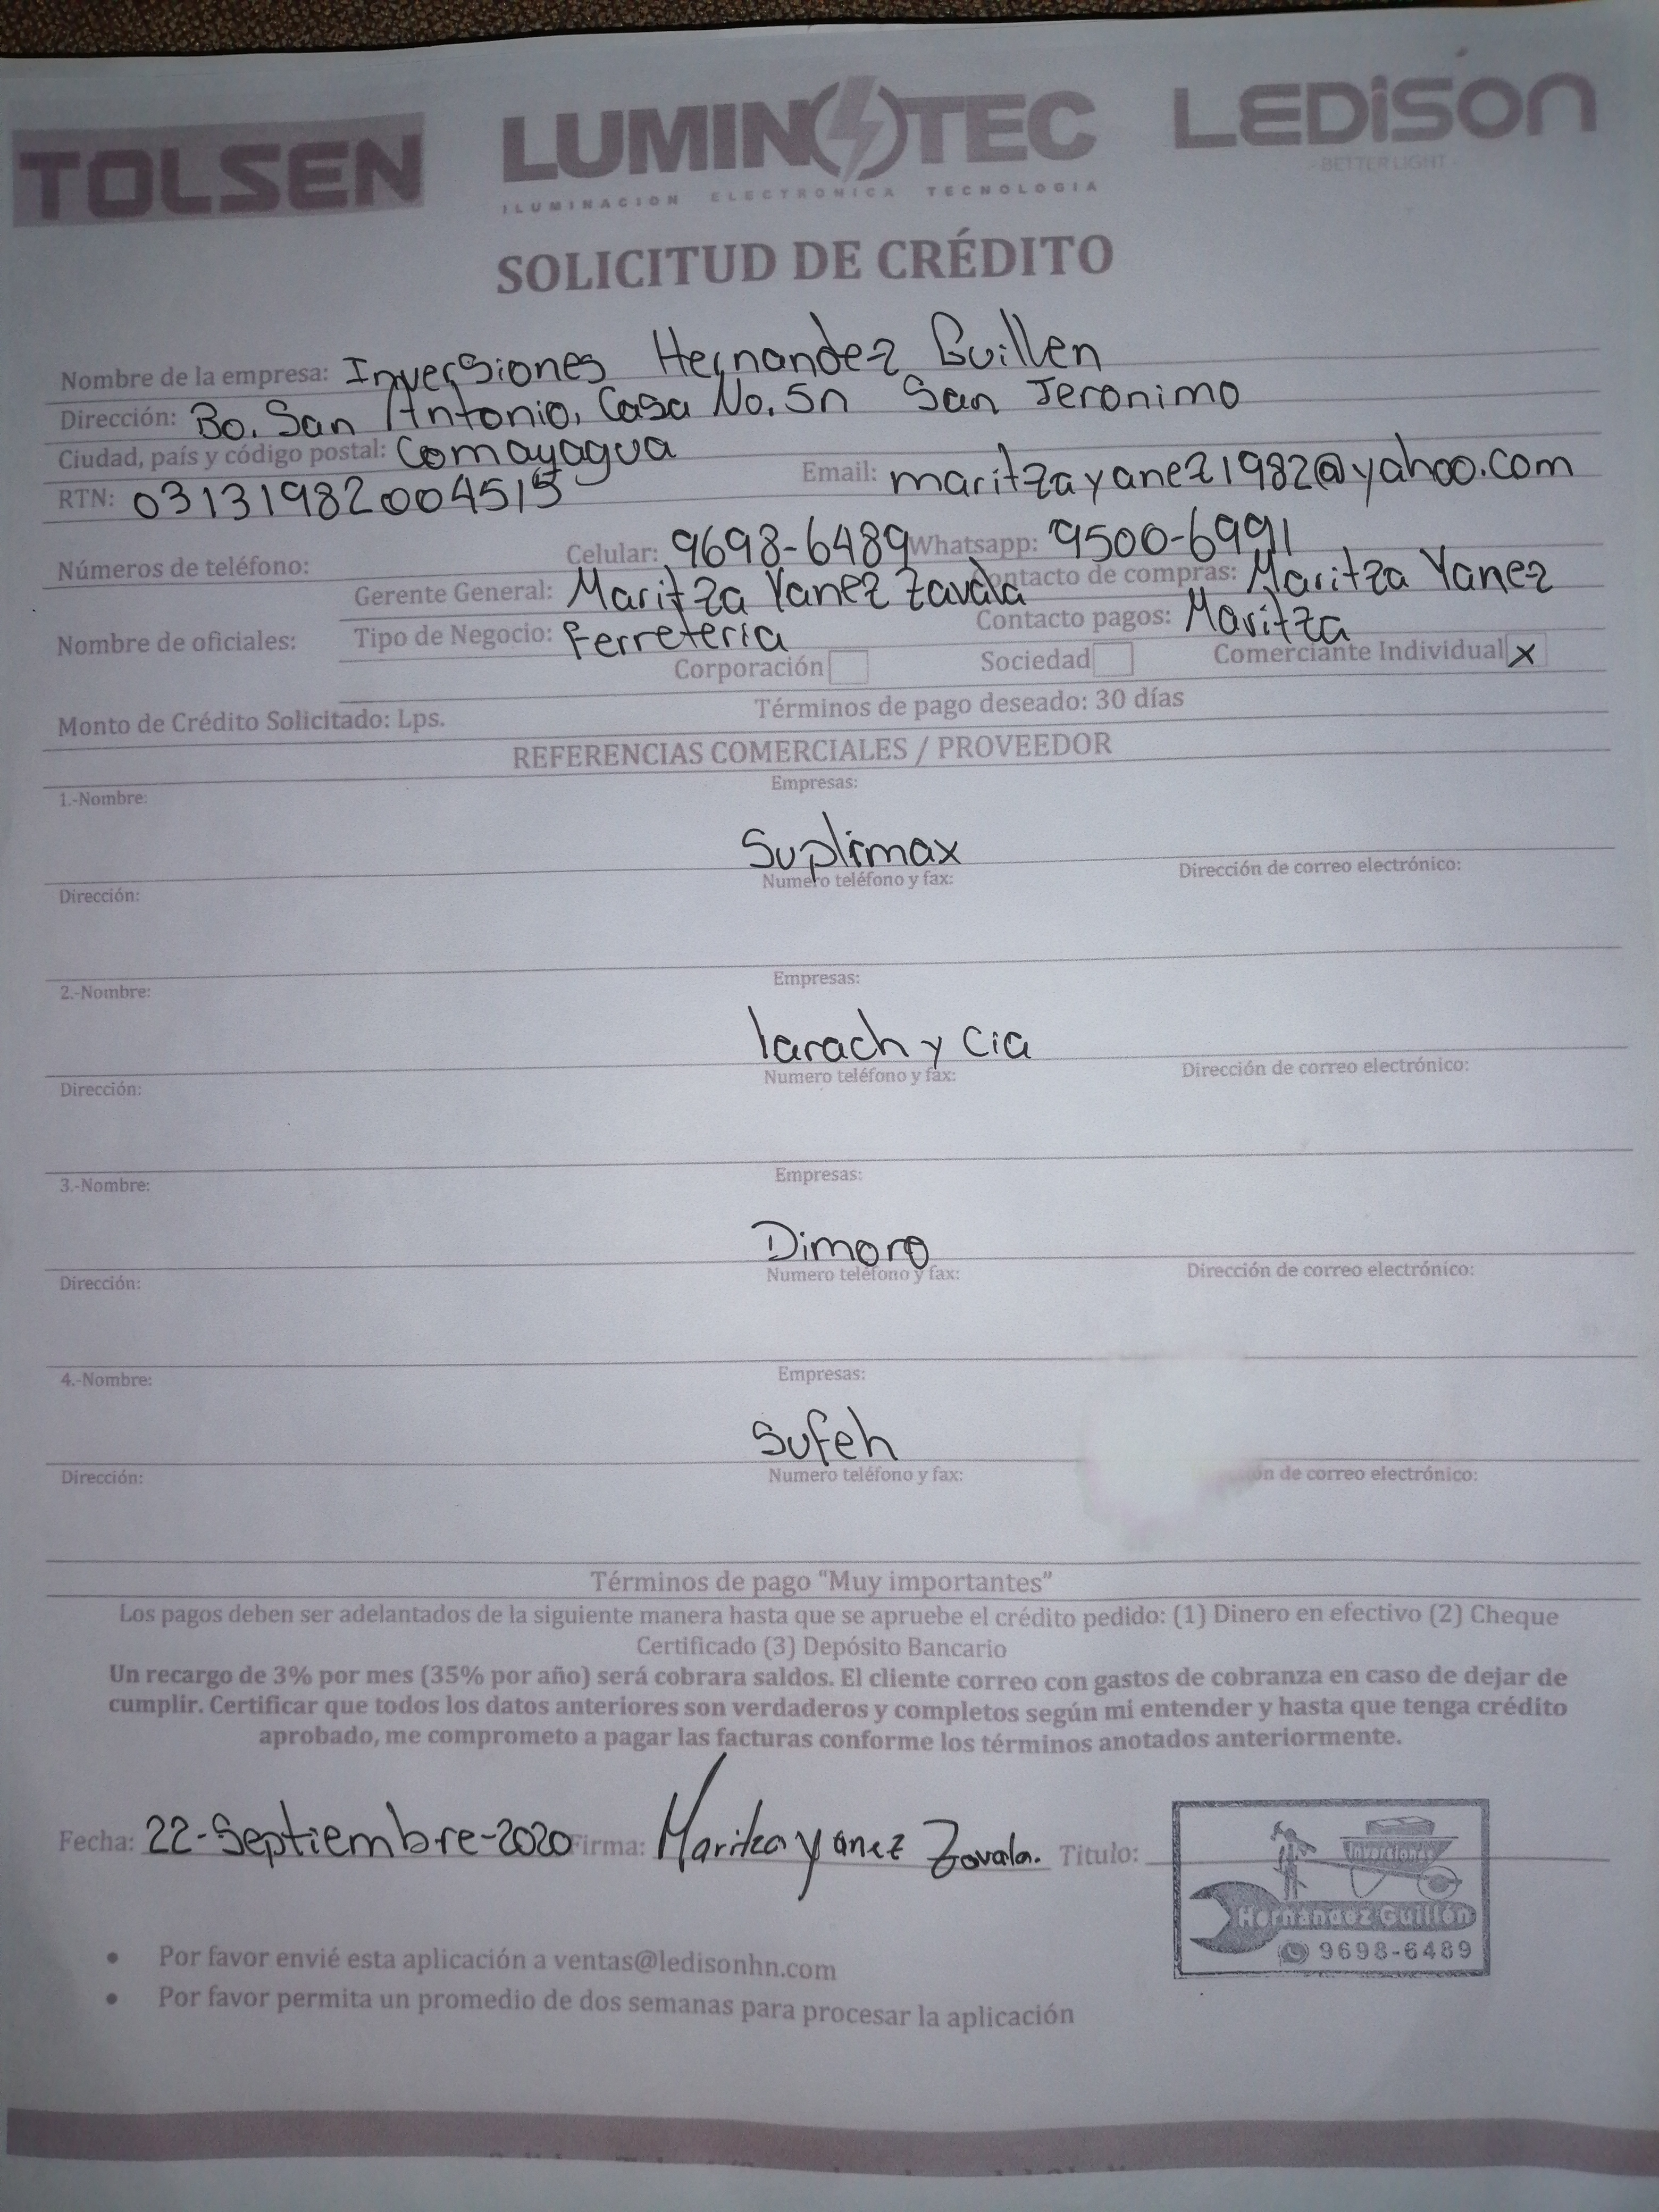 TOLSEN LUMINOTEC LEDiSON
ILUMINACION ELECTRONICA TECNOLOGIA
-BETTER LIGHT-
SOLICITUD DE CRÉDITO
Nombre de la empresa: Inversiones Hernandez Guillen
Dirección: Bo. San Antonio, Casa No. Sn San Jeronimo
Ciudad, país y código postal: Comayagua
RTN: 03131982004515 Email: maritzayanez1982@yahoo.com
Números de teléfono: Celular: 9698-6489 Whatsapp: 9500-6991
Gerente General: Maritza Yanez Zavala Contacto de compras: Maritza Yanez
Nombre de oficiales: Tipo de Negocio: Ferreteria Contacto pagos: Maritza
Corporación Sociedad Comerciante Individual x
Monto de Crédito Solicitado: Lps. Términos de pago deseado: 30 días
REFERENCIAS COMERCIALES / PROVEEDOR
1.-Nombre: Empresas:
Suplimax
Dirección: Numero teléfono y fax: Dirección de correo electrónico:
2.-Nombre: Empresas:
larach y Cia
Dirección: Numero teléfono y fax: Dirección de correo electrónico:
3.-Nombre: Empresas:
Dimoro
Dirección: Numero teléfono y fax: Dirección de correo electrónico:
4.-Nombre: Empresas:
Sufeh
Dirección: Numero teléfono y fax: de correo electrónico:
Términos de pago “Muy importantes”
Los pagos deben ser adelantados de la siguiente manera hasta que se apruebe el crédito pedido: (1) Dinero en efectivo (2) Cheque
Certificado (3) Depósito Bancario
Un recargo de 3% por mes (35% por año) será cobrara saldos. El cliente correo con gastos de cobranza en caso de dejar de
cumplir. Certificar que todos los datos anteriores son verdaderos y completos según mi entender y hasta que tenga crédito
aprobado, me comprometo a pagar las facturas conforme los términos anotados anteriormente.
Fecha: 22-Septiembre-2020 Firma: Maritza Yanez Zavala. Titulo:
Inversiones
Hernández Guillén
9698-6489
• Por favor envié esta aplicación a ventas@ledisonhn.com
• Por favor permita un promedio de dos semanas para procesar la aplicación